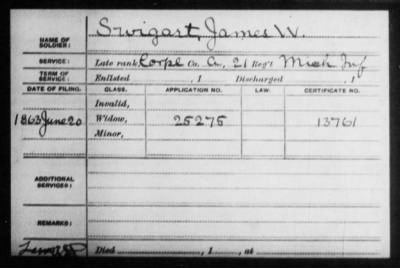 NAME OF SOLDIER: Swigart, James W.
SERVICE: Late rank, Corpl Co. A, 21 Reg't Mich Inf
TERM OF SERVICE: Enlisted , 1 Discharged , 1
DATE OF FILING. CLASS. APPLICATION NO. LAW. CERTIFICATE NO.
Invalid,
1863 June 20 Widow, 25275 13761
Minor,
ADDITIONAL SERVICES:
REMARKS:
Died , 1 , at